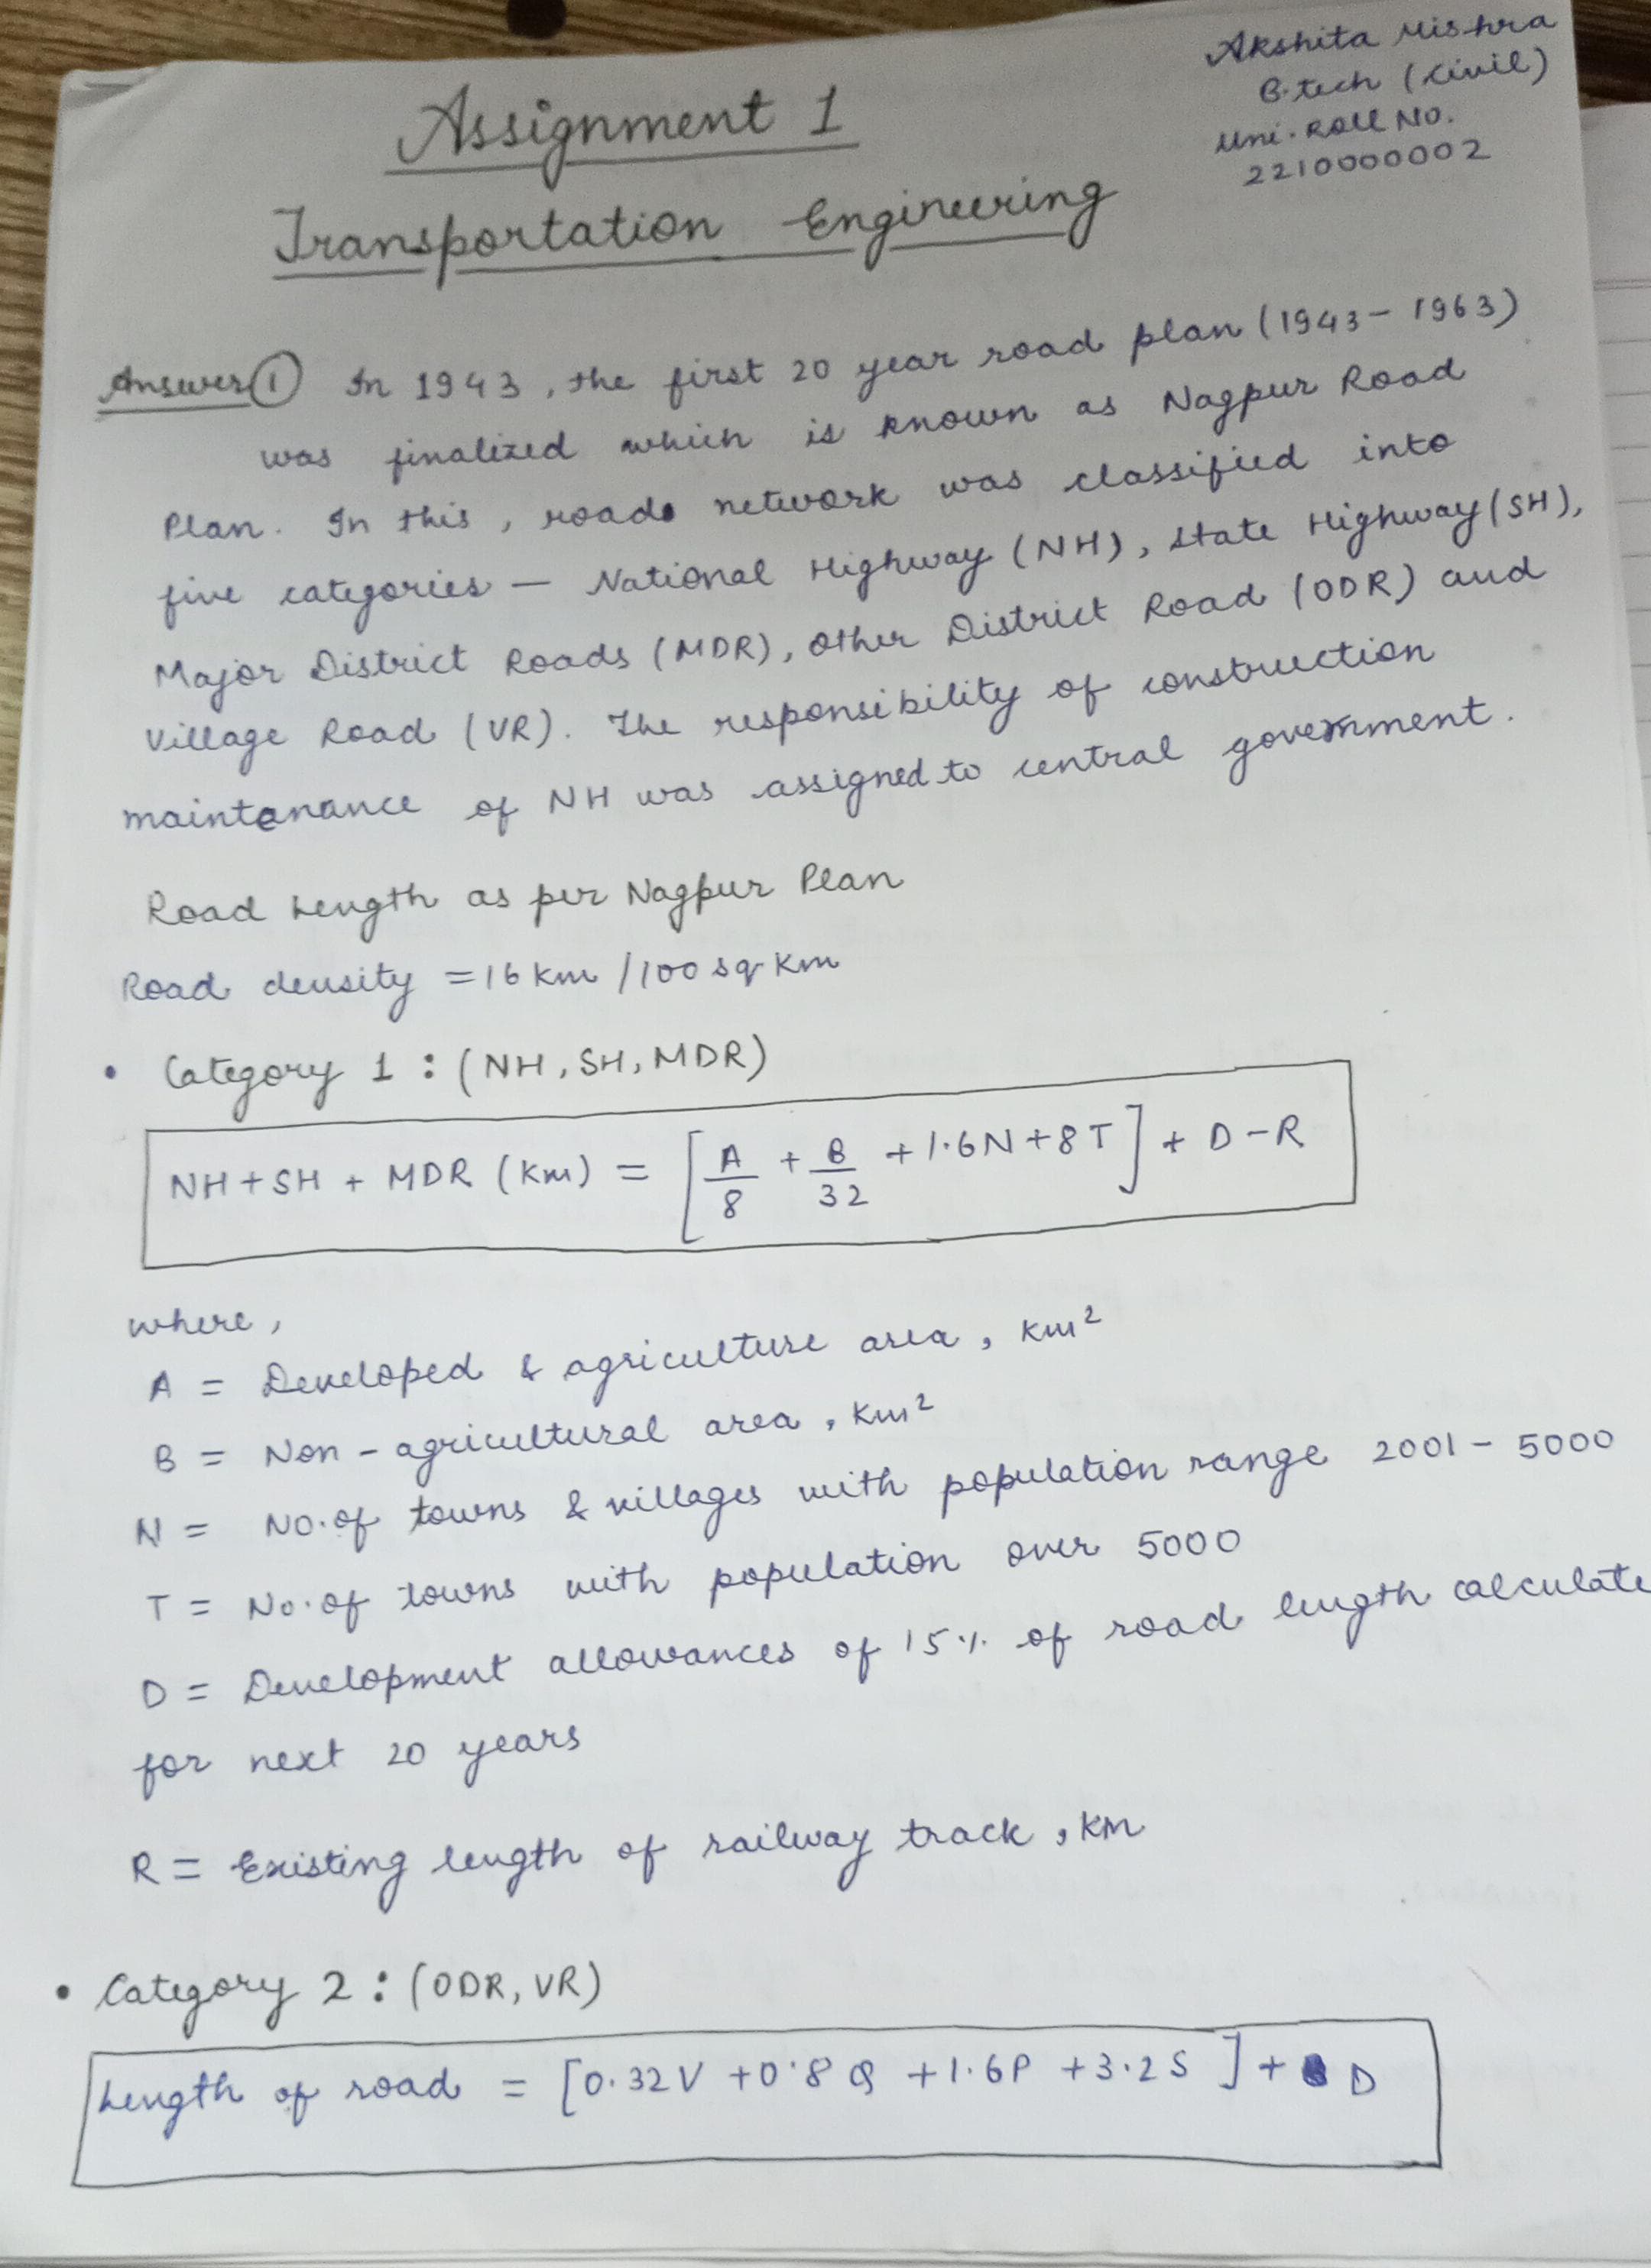 Akshita Mishra
B.tech (Civil)
Uni. Roll No.
2210000002
Assignment 1
Transportation Engineering
Answer 1 In 1943, the first 20 year road plan (1943-1963)
was finalized which is known as Nagpur Road
Plan. In this, roads network was classified into
five categories — National Highway (NH), State Highway (SH),
Major District Roads (MDR), Other District Road (ODR) and
Village Road (VR). The responsibility of construction
maintenance of NH was assigned to central government.
Road Length as per Nagpur Plan
Road density = 16 km / 100 sq km
• Category 1 : (NH, SH, MDR)
NH + SH + MDR (km) = [A/8 + B/32 + 1.6N + 8T] + D - R
where,
A = Developed & agriculture area, km²
B = Non-agricultural area, km²
N = No. of towns & villages with population range 2001 - 5000
T = No. of towns with population over 5000
D = Development allowances of 15% of road length calculate
for next 20 years
R = Existing length of railway track, km
• Category 2 : (ODR, VR)
Length of road = [0.32V + 0.8Q + 1.6P + 3.2S] + D